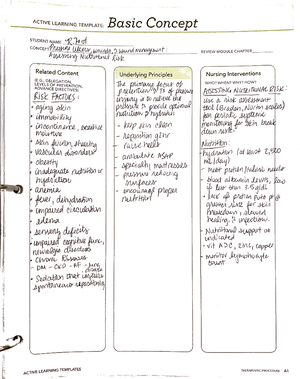 ACTIVE LEARNING TEMPLATE: Basic Concept
STUDENT NAME
CONCEPT Pressure Ulcers, wounds, & wound management
REVIEW MODULE CHAPTER
Assessing Nutritional Risk
Related Content
(E.G., DELEGATION,
LEVELS OF PREVENTION,
ADVANCE DIRECTIVES)
RISK FACTORS:
• aging skin
• immobility
• incontinence, excessive
moisture
• skin friction, shearing
• vascular disorders
• obesity
• inadequate nutrition or
hydration
• anemia
• fever, dehydration
• impaired circulation
• edema
• sensory deficits
• impaired cognitive func,
neurologic disorders
• Chronic diseases
- DM - CKD - HF - lung
disease
• Sedation that impairs
spontaneous repositioning
Underlying Principles
The primary focus of
prevention & tx of pressure
injury is to relieve the
pressure & provide optimal
nutrition & hydration
- keep skin clean
- reposition q2hr
- raise heels
- ambulate ASAP
- specialty mattresses
- pressure reducing
surfaces
- encourage proper
nutrition
Nursing Interventions
WHO? WHEN? WHY? HOW?
ASSESSING NUTRITIONAL RISK:
Use a risk assessment
tool (Braden, Norton scales)
for periodic, systemic
monitoring for skin break
down risk
Nutrition:
• hydration (at least 2,500
mL/day)
• meet protein/caloric needs
- blood albumin levels, low
if less than 3.5 g/dL
• lack of protein puts pt @
greater risk for skin
breakdown, slowed
healing, & infection.
• Nutritional support as
indicated
- vit A & C, zinc, copper
• monitor lymphocyte
count
ACTIVE LEARNING TEMPLATES
THERAPEUTIC PROCEDURE A1